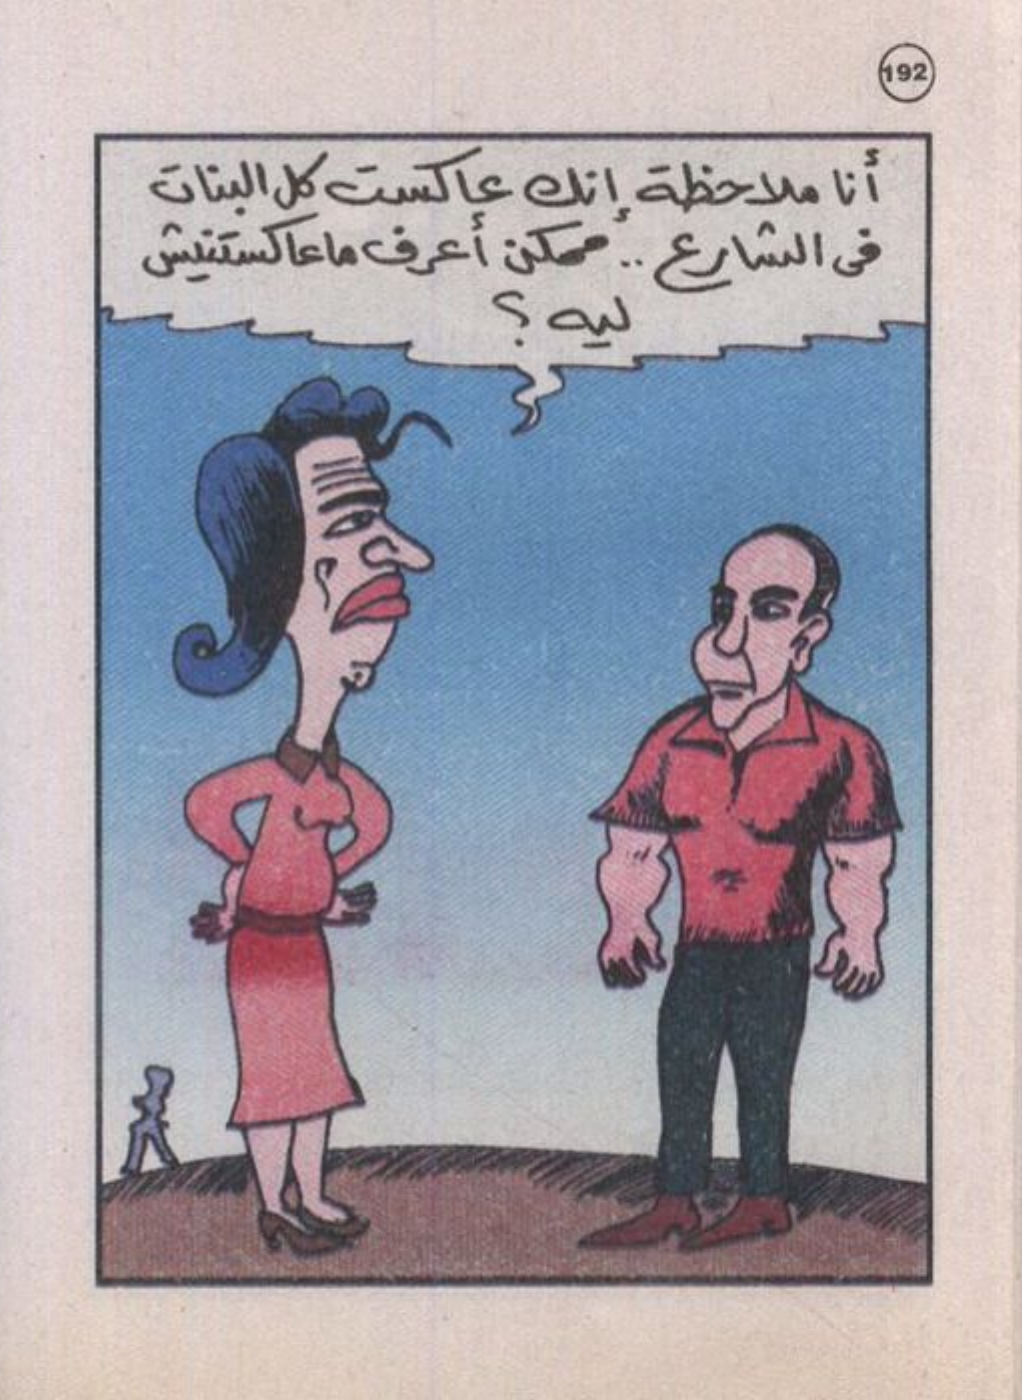 192
أنا ملاحظة إنك عاكست كل البنات
فى الشارع .. ممكن أعرف ماعاكستنيش
ليه ؟